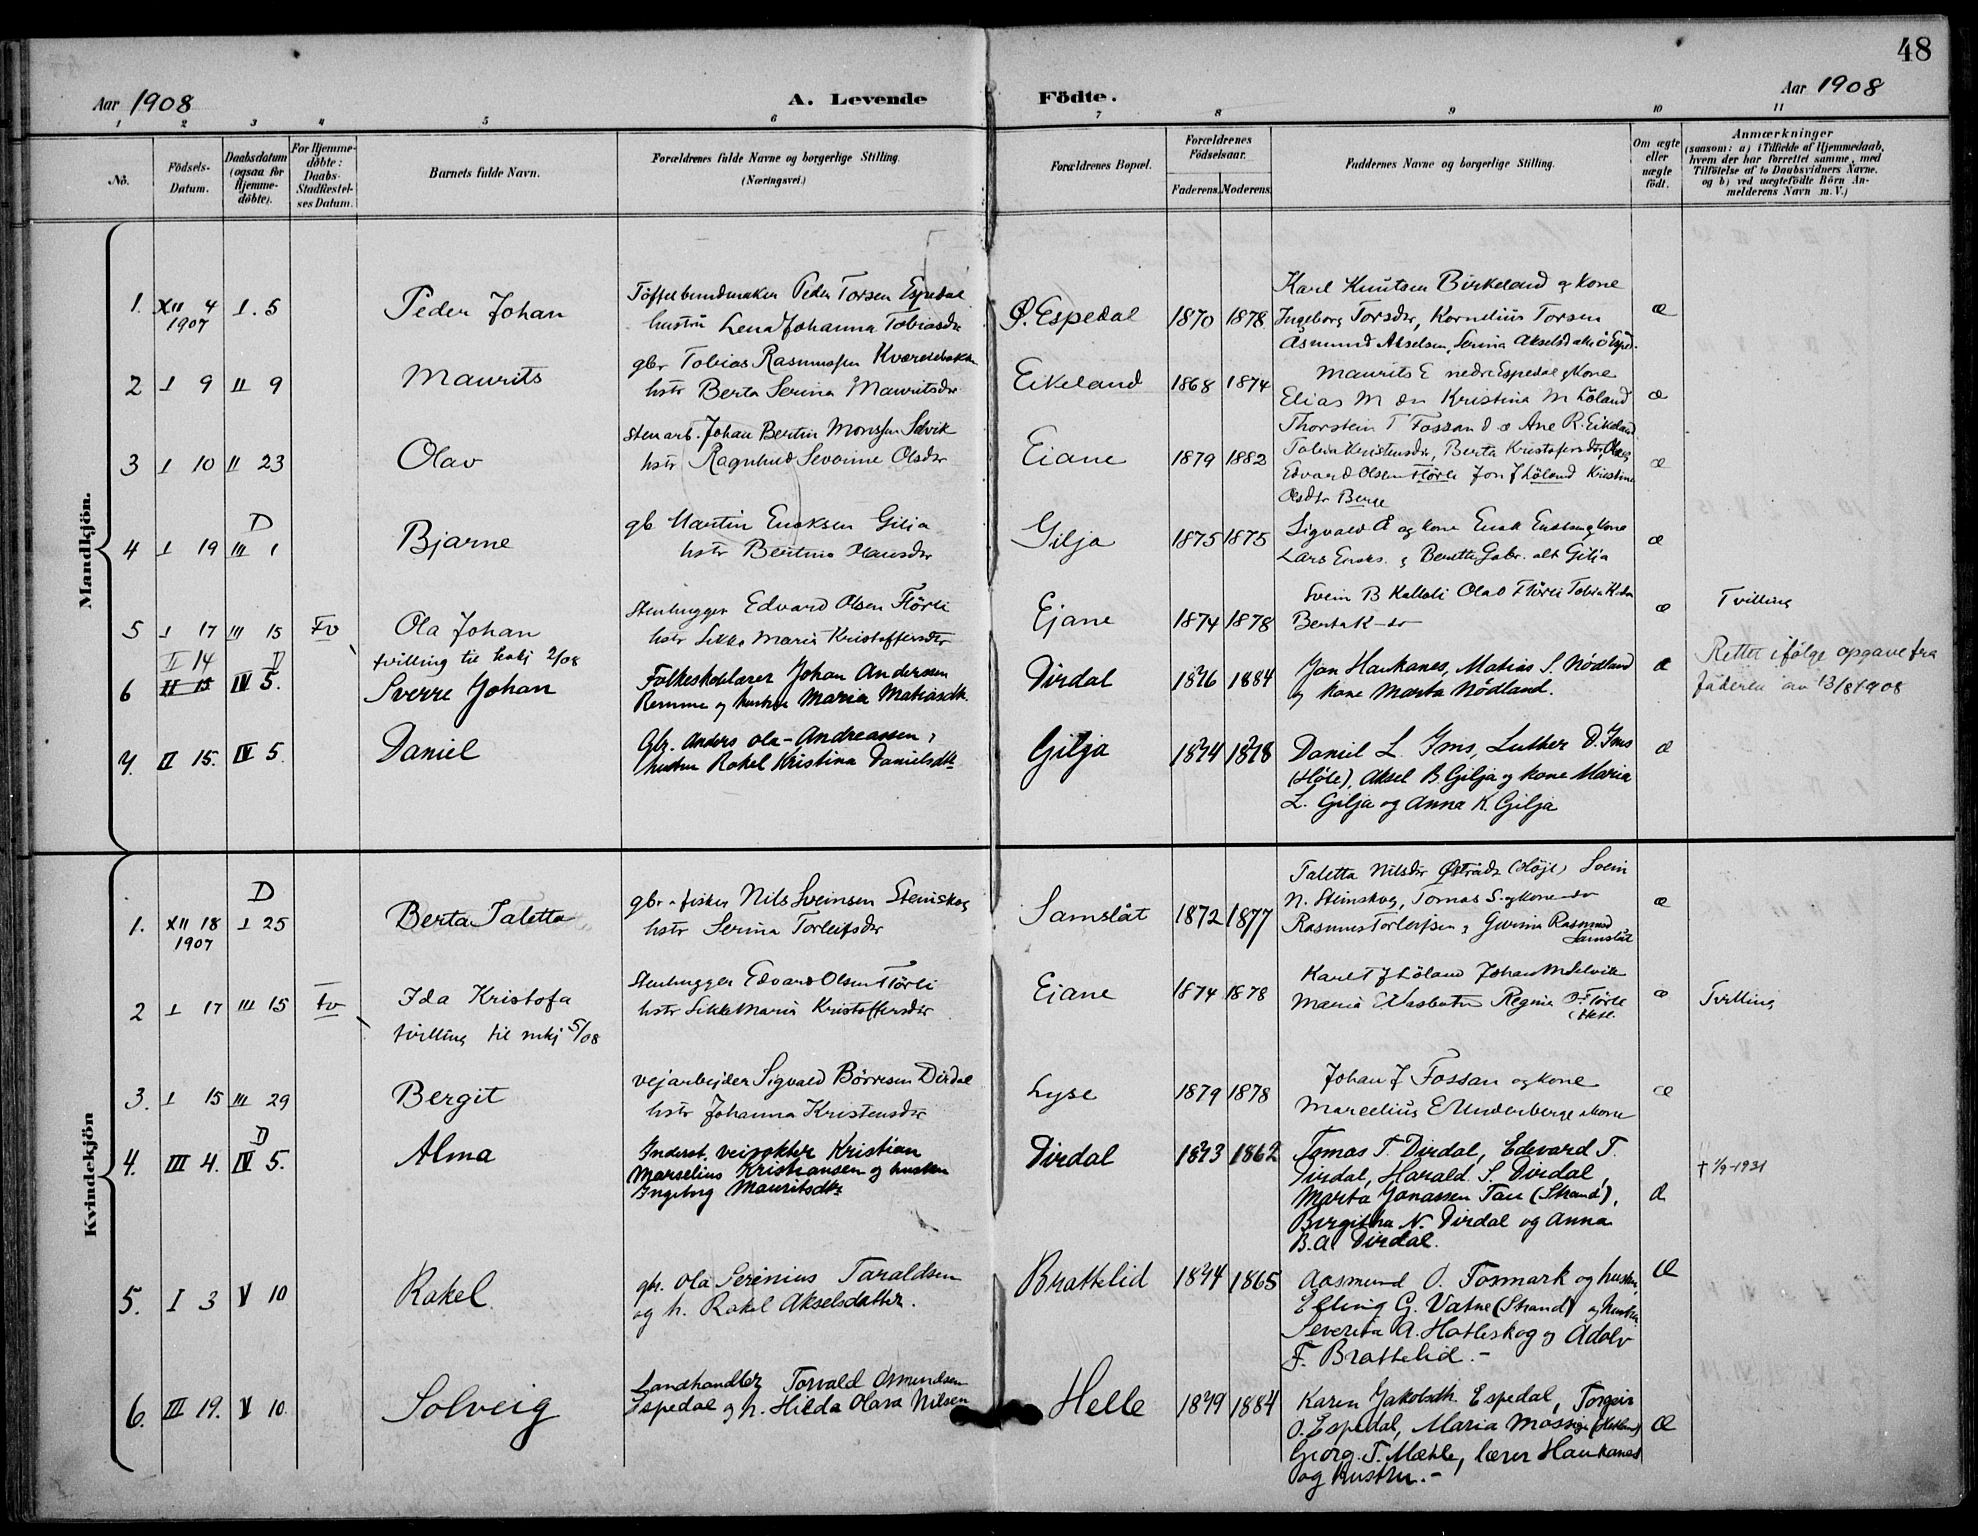 48
Aar 1908 A. Levende Födte. Aar 1908
1 2 3 4 5 6 7 8 9 10 11
No. Födsels-Datum. Daabsdatum (ogsaa for Hjemme-döbte). For Hjemme-döbte: Daabs-Stadfæstel-ses Datum. Barnets fulde Navn. Forældrenes fulde Navne og borgerlige Stilling. (Næringsvei.) Forældrenes Bopæl. Forældrenes Födselsaar. Faderens. Moderens. Faddernes Navne og borgerlige Stilling. Om ægte eller uægte födt. Anmærkninger (saasom: a) i Tilfælde af Hjemmedaab, hvem der har forrettet samme, med Tilföielse af to Daabsvidners Navne, og b) ved uægtefödte Börn An-melderens Navn m. V.)
Mandkjön.
1. XII 4 1907 I. 5 Peder Johan
Peder Torsen Espedal
hustru Lena Johanna Tobiasdr
Ö. Espedal 1870 1878
Karl Knutsen Birkeland & kone
Ingeborg Torsdr, Kornelius Torsen
Asmund Akselsen, Serina
æ
2 I 9 II 9 Maurits
gbr Tobias Rasmussen
hstr Berta Serina Mauritsdr
Eikeland 1868 1874
Maurits E nedre Espedal & kone
Elias M Kristina M Löland
Thorstein T Fossan Ane R. Eikeland
æ
3 I 10 II 23 Olav
stenarb. Johan Bertin Monsen Selvik
hstr Ragnhild Olsdr
Eiane 1879 1882
Berta Kristofersdr,
Edvard Olsen Flörli Jon J Löland Kristine
Olsdr Berge
æ
4 I 19 D III 1 Bjarne
gb Martin Ericksen Gilja
hstr Bertine
Gilja 1875 1875
Sigvald og kone
Lars alt Gilja
æ
5 I 17 III 15 Fv Ola Johan
tvilling til kvkj 2/08
Stenhugger Edvard Olsen Flörli
hstr Sikke Maria Kristoffersdtr
Ejane 1874 1878
Svein B Kalleli Olav Flörli
Berta K-dr
æ Tvilling
6 II 14 II 15 D IV 5. Sverre Johan
Folkeskolelærer Johan Anderssen
Remme og hustru Maria Matiasdtr.
Dirdal 1876 1884
Jon Haukanes, Matias S. Nödland
og kone Marta Nödland.
æ Rettet ifölge opgave fra
faderen av 13/8 1908
7. II 15. IV 5. Daniel
Gbr. Anders Ola-Andreassen,
hustru Rakel Kristina Danielsdtr
Gilja 1874 1878
Daniel L. Ims, Luther D. Ims
(Höle), Aksel B. Gilja og kone Maria
L. Gilja og Anna K. Gilja
æ
Kvindekjön
1. XII 18 1907 D I 25 Berta Taletta
gbr - fisker Nils Sveinsen Steinskog
hstr Serina Torleifsdr
Samslåt 1872 1877
Taletta Nilsdr Östråd (Höjl) Svein
N. Steinskog, Tomas S. og kone
Rasmus Torleifsen & Rasmusd
Samslåt
æ
2 I 17 III 15 Fv Ida Kristofa
tvilling til mkj 5/08
Stenhugger Edvard Olsen Flörli
hstr Sikke Maria Kristoffersdtr
Eiane 1874 1878
Karl T J Löland Johan M Selvik
Maria Regine
æ Tvilling
3. I 15 III 29 Bergit
vejarbejder Sigvald Börresen Dirdal
hstr Johanna Kristensdr
Lyse 1879 1878
Johan J Fossan og kone
Marcelius E Underberge & kone
æ
4. III 4. D IV 5. Alma
Inderst. veivokter Kristian
Marselius Kristiansen og hustru
Ingeborg Mauritsdtr
Dirdal 1873 1862
Tomas T. Dirdal, Edvard T.
Dirdal, Harald S. Dirdal,
Marta Jonassen Tau (Strand),
Birgitha N. Dirdal og Anna
B.A. Dirdal.
æ † 1/9-1931
5. I 3 V 10 Rakel.
gbr. Ola Serinius Taraldsen
og h. Rakel Akselsdatter.
Brattelid 1874 1865
Aasmund O. Fosmark og hustru,
Elling G. Vatne (Strand) og hustru
Severina A. Hatleskog og Adolv
F. Brattelid.-
Æ
6. III 19. V 10. Solveig
Landhandler Torvald Osmundsen
Espedal og h. Hilda Olava Nilsen
Helle 1879 1884
Karen Jakobsdtr. Espedal, Torgeir
O. Espedal, Maria Mossige (Hetland)
Georg. T. Mæhle, lærer Haukanes
og hustru.-
Æ